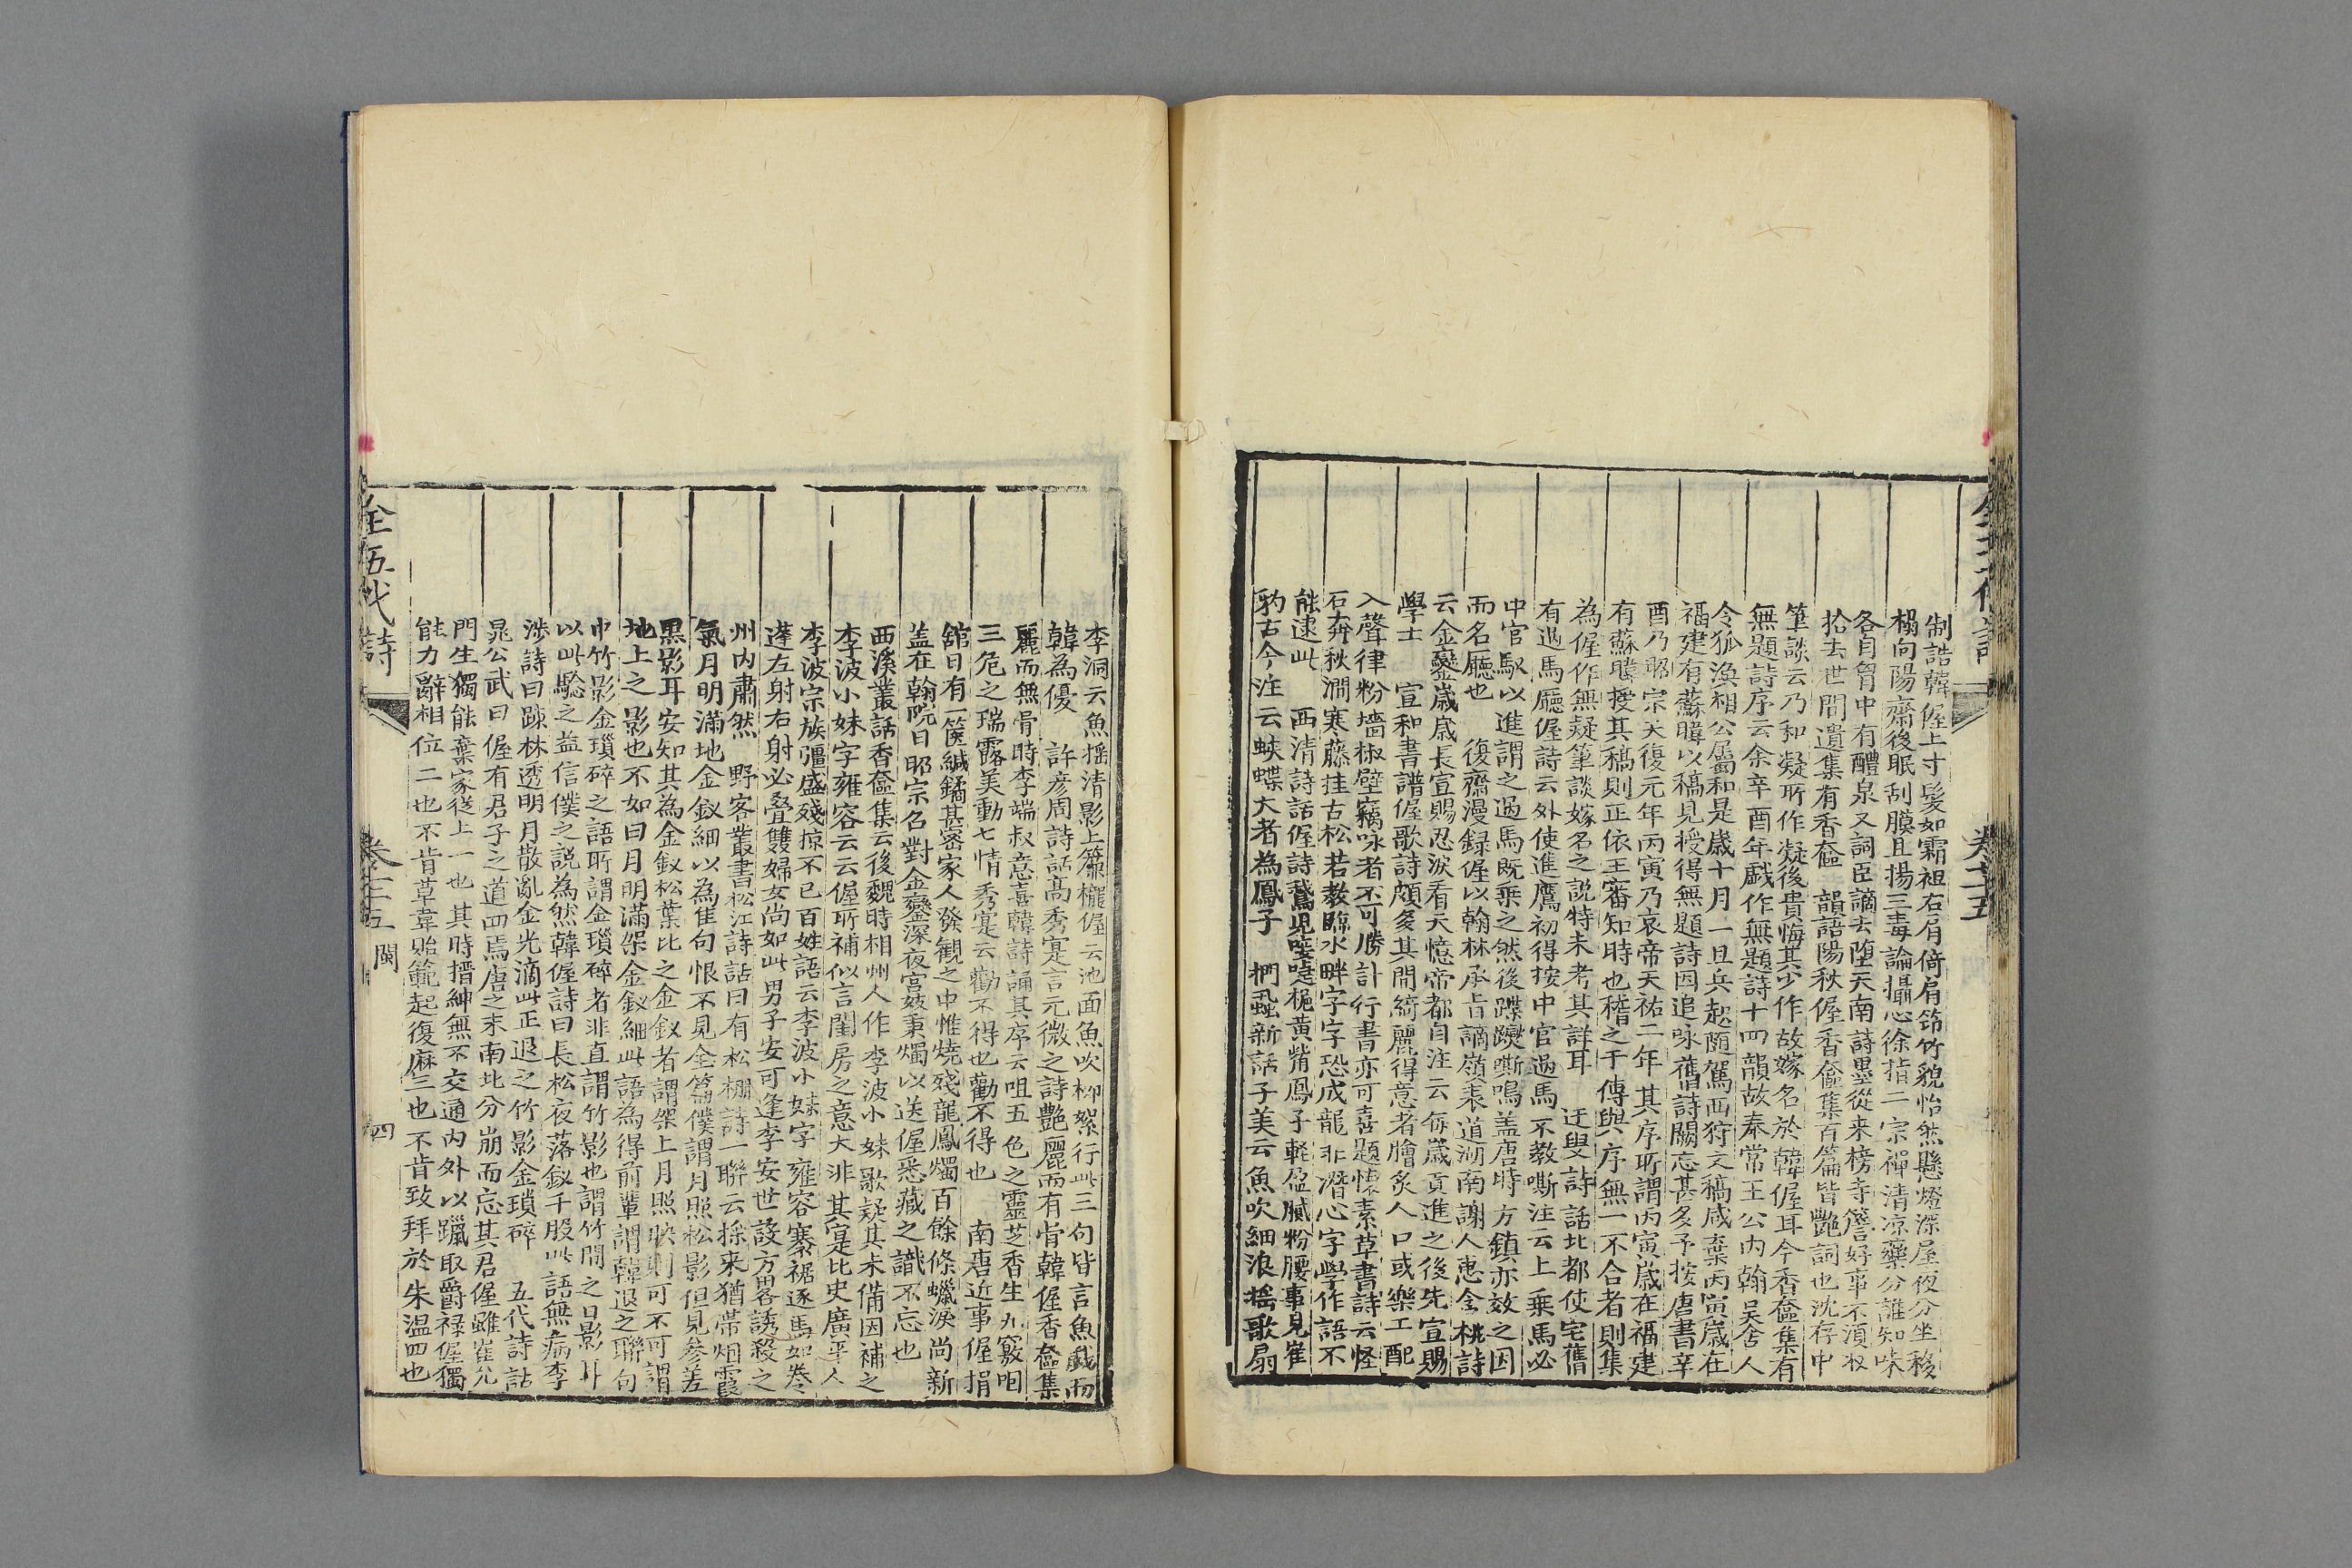 制誥韓偓上寸髮如霜袒右肩倚肩筇竹貌怡然懸燈深屋夜分坐移
榻向陽齋後眠刮膜且揚三毒論攝心徐指二宗禪清凉藥分誰知味
各自胷中有醴泉又詞臣謫去堕天南詩墨從来榜寺簷好事不湏收
拾去世間遺集有香奩　韻語陽秋偓香奩集百篇皆艶詞也沈存中
筆談云乃和凝所作凝後貴悔其少作故嫁名於韓偓耳今香奩集有
無題詩序云余辛酉年戯作無題詩十四韻故奉常王公内翰吴舍人
令狐渙相公屬和是歳十月一旦兵起随駕西狩文稿咸棄丙寅歳在
福建有蘇暐以稿見授得無題詩因追咏舊詩闕忘甚多予按唐書辛
酉乃昭宗天復元年丙寅乃哀帝天祐二年其序所謂丙寅歳在福建
有蘇暐授其稿則正依王審知時也稽之于傳與序無一不合者則集
為偓作無疑筆談嫁名之説特未考其詳耳　迂叟詩話北都使宅舊
有過馬廳偓詩云外使進鷹初得按中官過馬不教嘶注云上乗馬必
中官馭以進謂之過馬既乗之然後蹀躞嘶鳴盖唐時方鎮亦效之因
而名廳也　復齋漫録偓以翰林承旨謫嶺表道湖南謝人惠含桃詩
云金鑾歳歳長宣賜忍淚看天憶帝都自注云每歳貢進之後先宣賜
學士　宣和書譜偓歌詩頗多其間綺麗得意者膾炙人口或樂工配
入聲律粉墻椒壁竊咏者不可勝計行書亦可喜題懐素草書詩云怪
石奔秋澗寒藤挂古松若教臨水畔字字恐成龍非潛心字學作語不
能逮此　西清詩話偓詩鵝児唼啑梔黄觜鳳子輕盈膩粉腰事見崔
豹古今注云蛺蝶大者為鳳子　捫蝨新話子美云魚吹細浪揺歌扇
李洞云魚揺清影上簾櫳偓云池面魚吹柳絮行此三句皆言魚戯而
韓為優　許彦周詩話高秀寔言元微之詩艶麗而有骨韓偓香奩集
麗而無骨時李端叔意喜韓詩誦其序云咀五色之靈芝香生九竅咽
三危之瑞露美動七情秀寔云勸不得也勸不得也　南唐近事偓捐
舘日有一篋緘鐍甚密家人發觀之中惟燒殘龍鳳燭百餘條蠟淚尚新
盖在翰院日昭宗召對金鑾深夜宫妓秉燭以送偓悉藏之識不忘也
西溪叢話香奩集云後魏時相州人作李波小妹歌疑其未備因補之
李波小妹字雍容云云偓所補似言閨房之意大非其㫖是北史廣平人
李波宗族彊盛殘掠不已百姓語云李波小妹字雍容褰裾逐馬如卷
蓬左射右射必叠雙婦女尚如此男子安可逢李安世設方畧誘殺之
州内肅然　野客叢書松江詩話曰有松棚詩一聯云採来猶帶烟霞
氣月明滿地金釵細以為隹句恨不見全篇僕謂月照松影但見參差
黒影耳安知其為金釵松葉比之金釵者謂架上月照映則可不可謂
地上之影也不如曰月明滿架金釵細此語為得前輩謂韓退之聯句
中竹影金瑣碎之語所謂金瑣碎者非直謂竹影也謂竹間之日影耳
以此驗之益信僕之説為然韓偓詩曰長松夜落釵千股此語無病李
涉詩曰踈林透明月散亂金光滴此正退之竹影金瑣碎　五代詩話
晁公武曰偓有君子之道四焉唐之末南北分崩而忘其君偓雖崔允
門生獨能棄家從上一也其時搢紳無不交通内外以躐取爵禄偓獨
能力辭相位二也不肯草韋貽範起復麻三也不肯致拜於朱温四也
全五代詩
卷七十五
閩
四